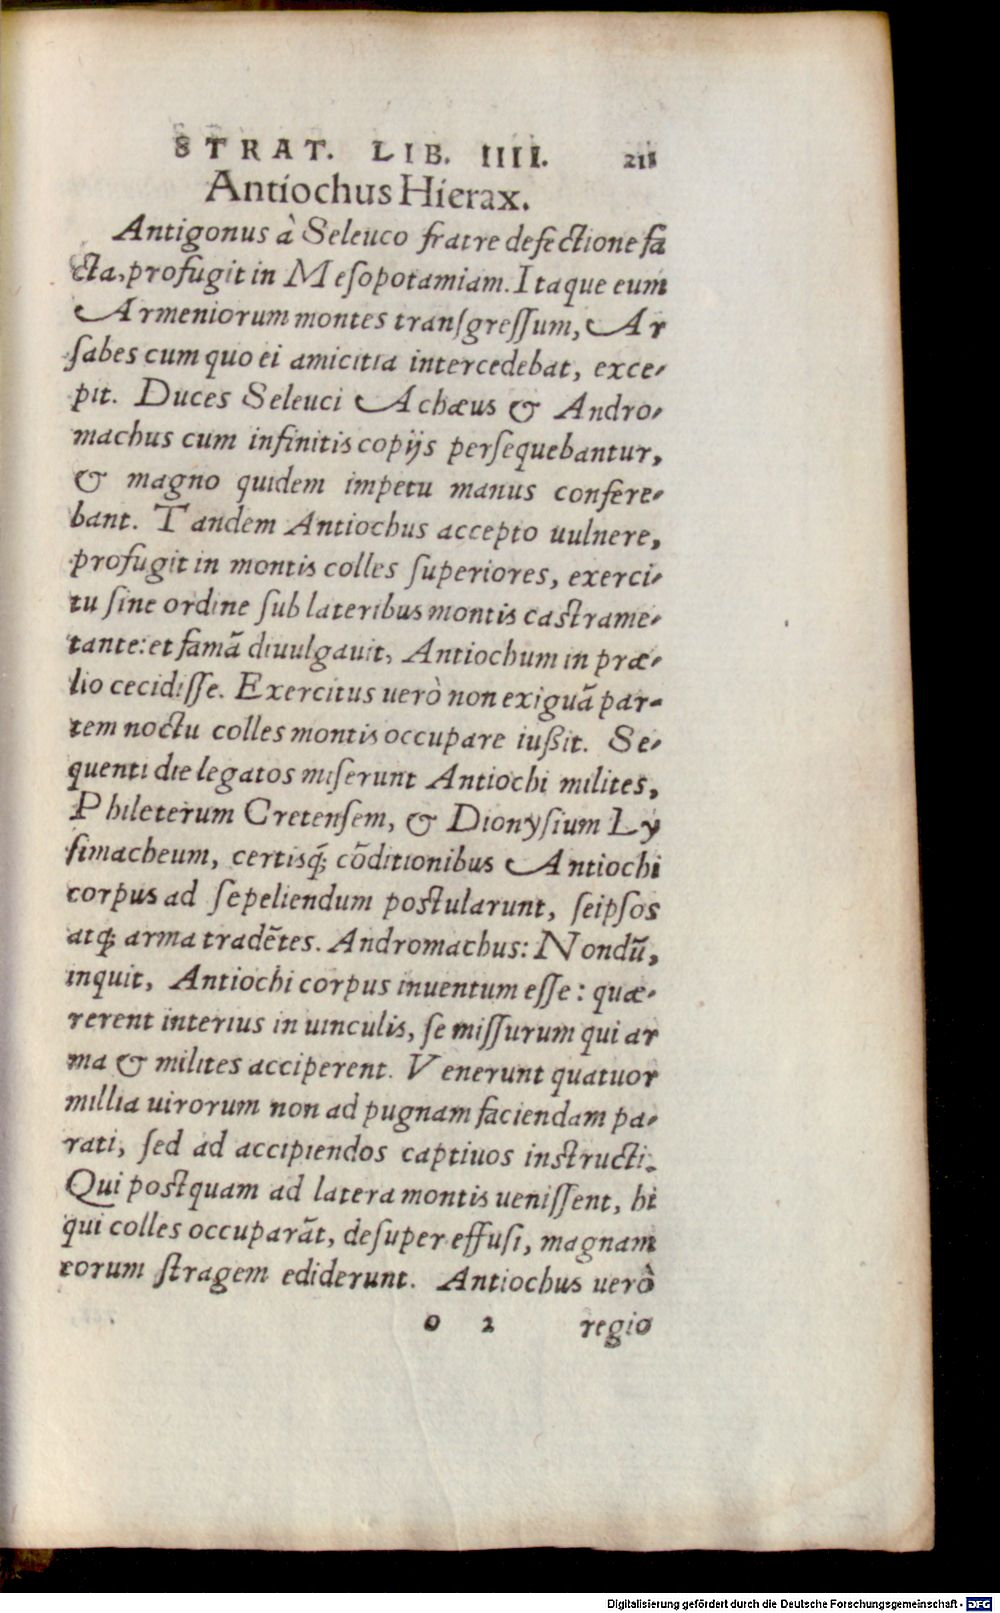 STRAT. LIB. IIII. 211
Antiochus Hierax.
Antigonus à Seleuco fratre defectione fa
cta, profugit in Mesopotamiam. Itaque eum
Armeniorum montes transgressum, Ar
sabes cum quo ei amicitia intercedebat, exce-
pit. Duces Seleuci Achæus & Andro-
machus cum infinitis copijs persequebantur,
& magno quidem impetu manus confere-
bant. Tandem Antiochus accepto uulnere,
profugit in montis colles superiores, exerci-
tu sine ordine sub lateribus montis castrame-
tante: et famã diuulgauit, Antiochum in præ-
lio cecidisse. Exercitus uerò non exiguã par-
tem noctu colles montis occupare iußit. Se-
quenti die legatos miserunt Antiochi milites,
Phileterum Cretensem, & Dionysium Ly
simacheum, certisq́; cõditionibus Antiochi
corpus ad sepeliendum postularunt, seipsos
atq; arma tradẽtes. Andromachus: Nondũ,
inquit, Antiochi corpus inuentum esse: quæ-
rerent interius in uinculis, se missurum qui ar
ma & milites acciperent. Venerunt quatuor
millia uirorum non ad pugnam faciendam pa-
rati, sed ad accipiendos captiuos instructi.
Qui postquam ad latera montis uenissent, hi
qui colles occuparãt, desuper effusi, magnam
eorum stragem ediderunt. Antiochus uerò
o 2 regio
Digitalisierung gefördert durch die Deutsche Forschungsgemeinschaft - DFG